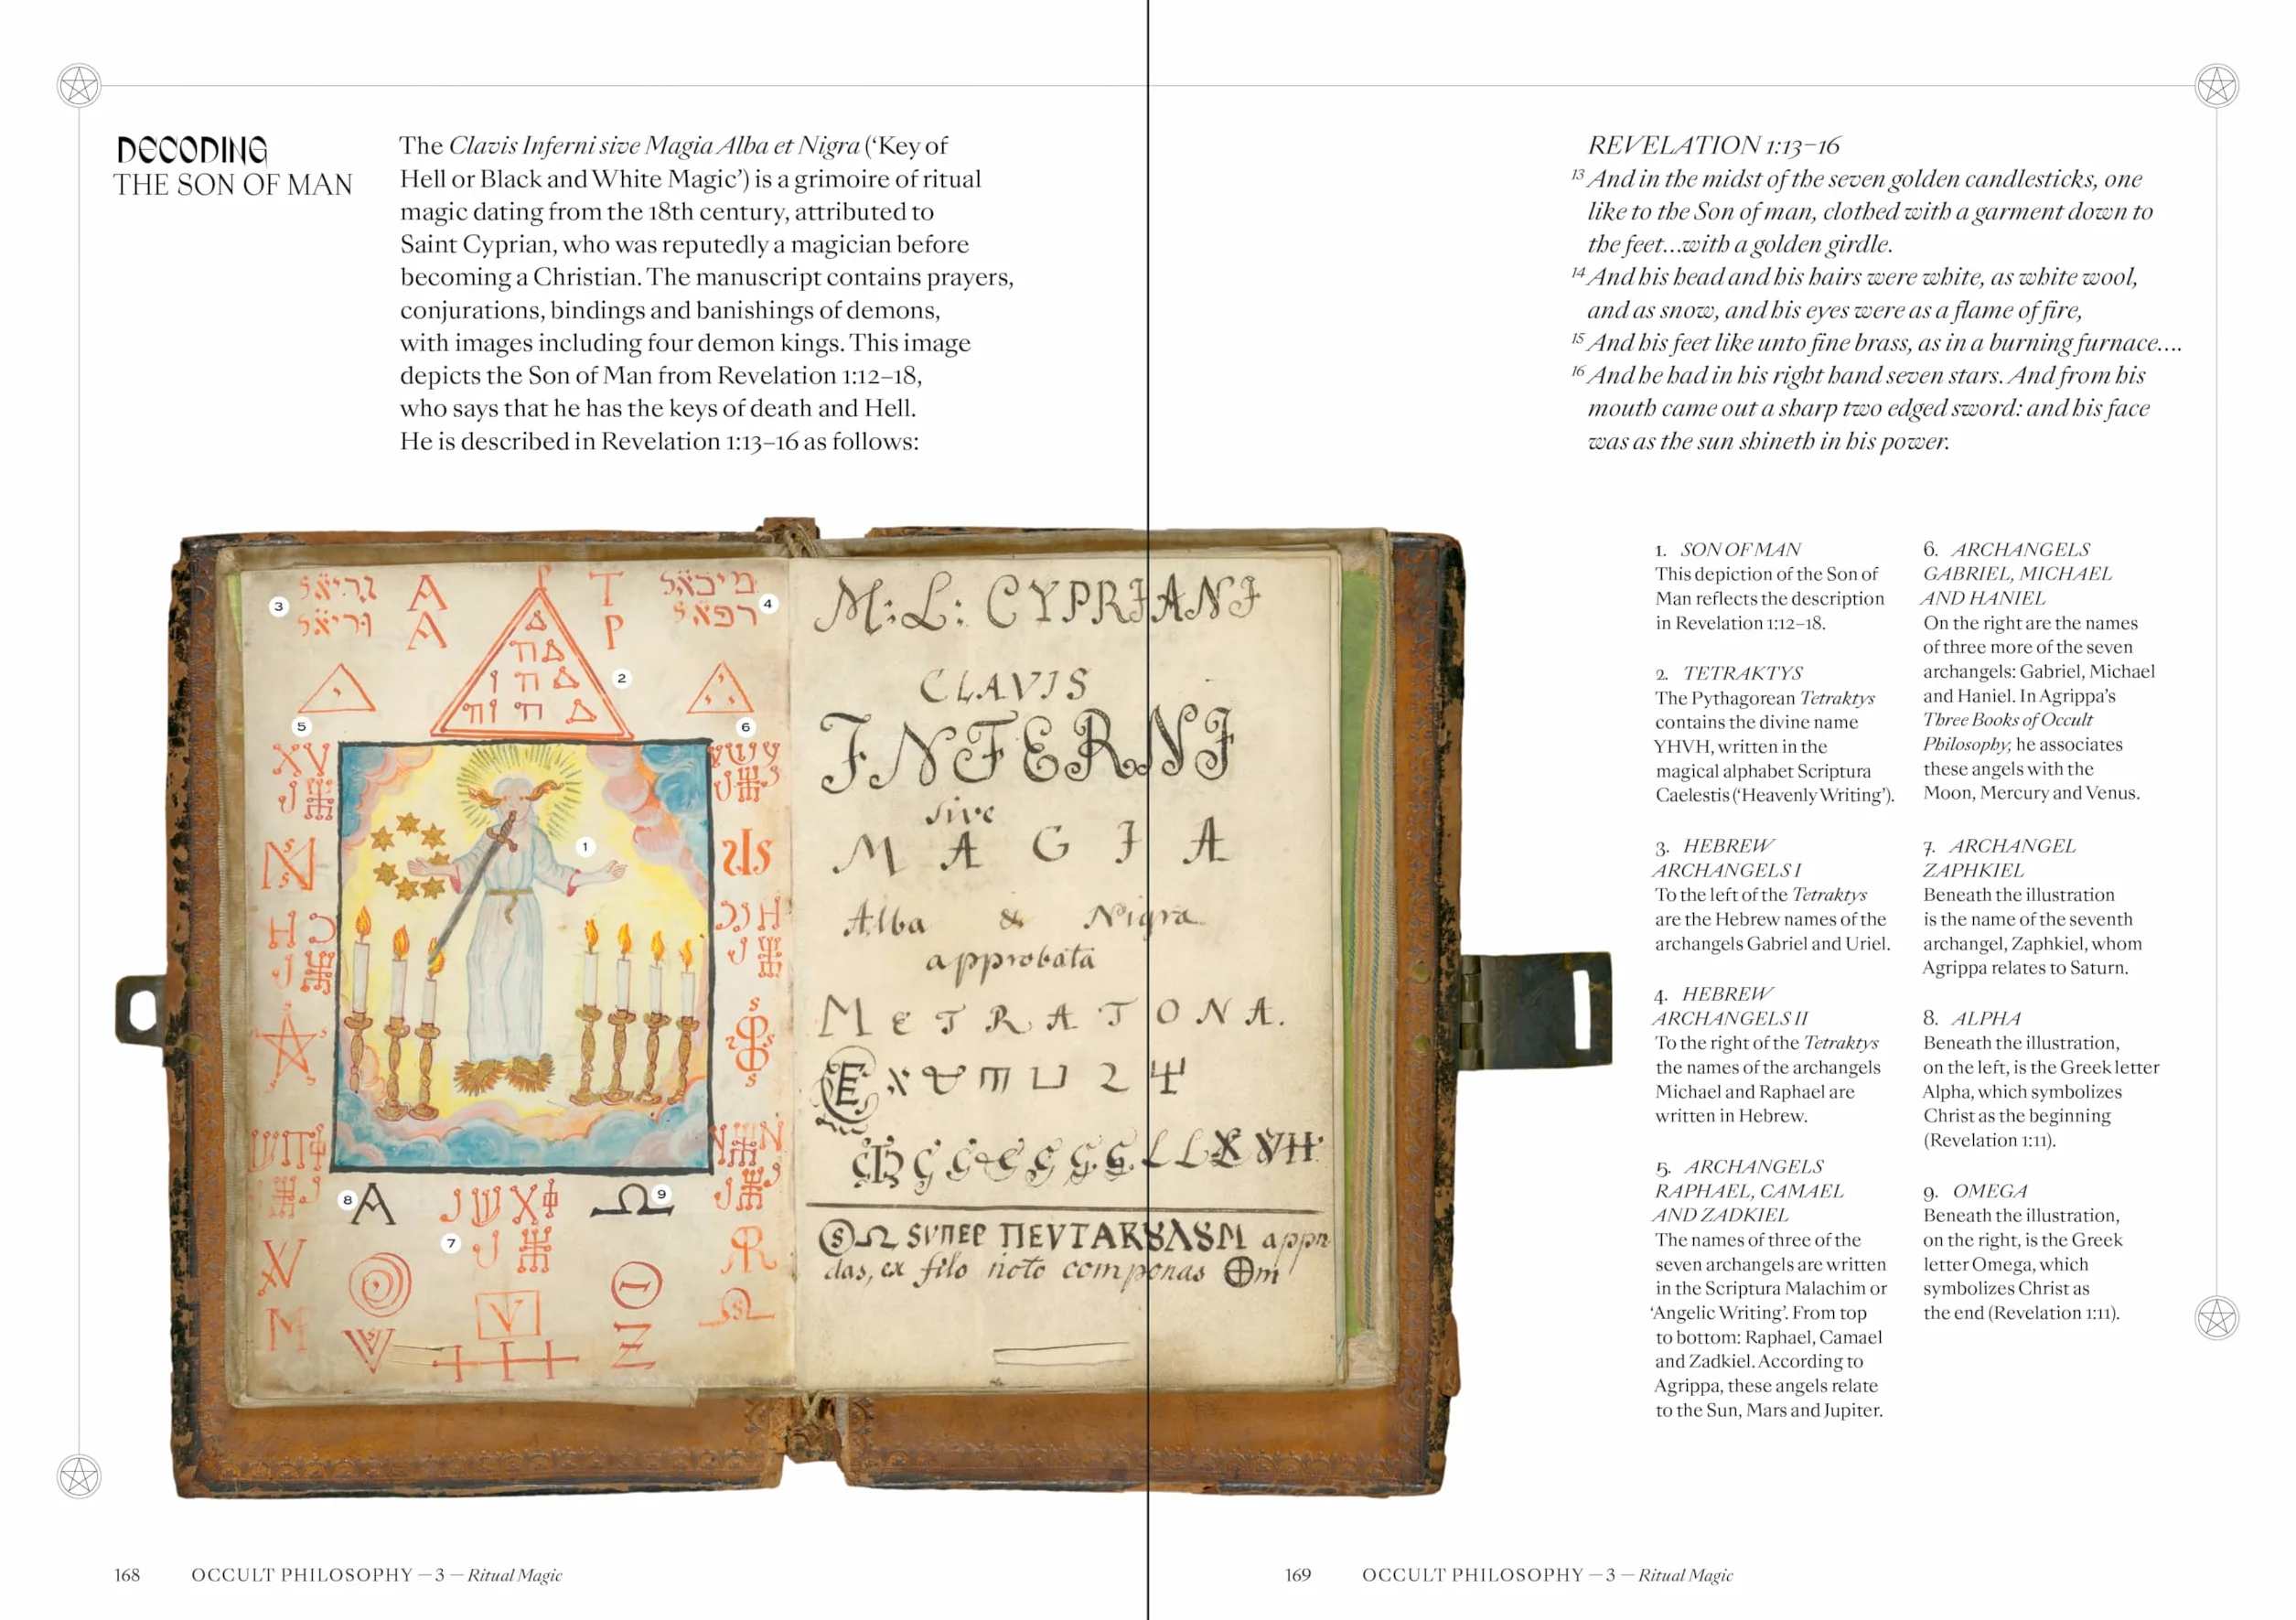 DECODING
THE SON OF MAN
The Clavis Inferni sive Magia Alba et Nigra (‘Key of
Hell or Black and White Magic’) is a grimoire of ritual
magic dating from the 18th century, attributed to
Saint Cyprian, who was reputedly a magician before
becoming a Christian. The manuscript contains prayers,
conjurations, bindings and banishings of demons,
with images including four demon kings. This image
depicts the Son of Man from Revelation 1:12–18,
who says that he has the keys of death and Hell.
He is described in Revelation 1:13–16 as follows:
REVELATION 1:13–16
13 And in the midst of the seven golden candlesticks, one
like to the Son of man, clothed with a garment down to
the feet…with a golden girdle.
14 And his head and his hairs were white, as white wool,
and as snow, and his eyes were as a flame of fire,
15 And his feet like unto fine brass, as in a burning furnace….
16 And he had in his right hand seven stars. And from his
mouth came out a sharp two edged sword: and his face
was as the sun shineth in his power.
3
A
T
מיכאל
4
A
P
רפאל
2
5
6
1
8
A
Ω
9
7
V
Z
M:L: CYPRIANI
CLAVIS
INFERNI
sive
MAGIA
Alba & Nigra
approbata
METRATONA.
1. SON OF MAN
This depiction of the Son of
Man reflects the description
in Revelation 1:12–18.
2. TETRAKTYS
The Pythagorean Tetraktys
contains the divine name
YHVH, written in the
magical alphabet Scriptura
Caelestis (‘Heavenly Writing’).
3. HEBREW
ARCHANGELS I
To the left of the Tetraktys
are the Hebrew names of the
archangels Gabriel and Uriel.
4. HEBREW
ARCHANGELS II
To the right of the Tetraktys
the names of the archangels
Michael and Raphael are
written in Hebrew.
5. ARCHANGELS
RAPHAEL, CAMAEL
AND ZADKIEL
The names of three of the
seven archangels are written
in the Scriptura Malachim or
‘Angelic Writing’. From top
to bottom: Raphael, Camael
and Zadkiel. According to
Agrippa, these angels relate
to the Sun, Mars and Jupiter.
6. ARCHANGELS
GABRIEL, MICHAEL
AND HANIEL
On the right are the names
of three more of the seven
archangels: Gabriel, Michael
and Haniel. In Agrippa’s
Three Books of Occult
Philosophy, he associates
these angels with the
Moon, Mercury and Venus.
7. ARCHANGEL
ZAPHKIEL
Beneath the illustration
is the name of the seventh
archangel, Zaphkiel, whom
Agrippa relates to Saturn.
8. ALPHA
Beneath the illustration,
on the left, is the Greek letter
Alpha, which symbolizes
Christ as the beginning
(Revelation 1:11).
9. OMEGA
Beneath the illustration,
on the right, is the Greek
letter Omega, which
symbolizes Christ as
the end (Revelation 1:11).
168 OCCULT PHILOSOPHY — 3 — Ritual Magic
169 OCCULT PHILOSOPHY — 3 — Ritual Magic